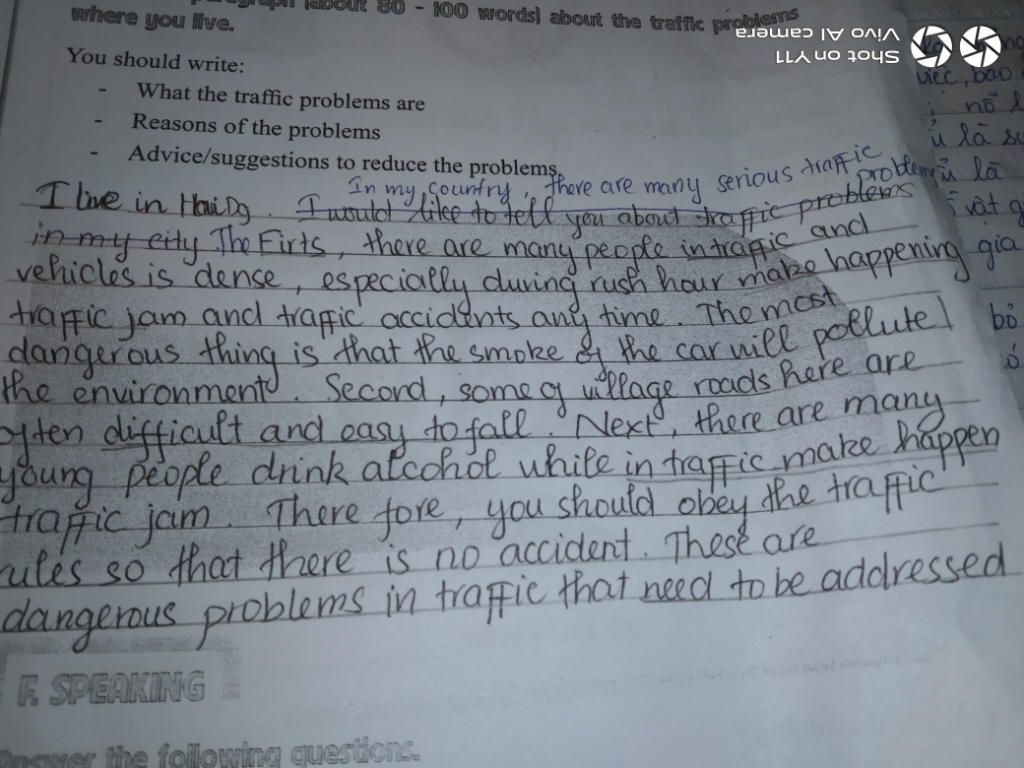 paragraph (about 80 - 100 words) about the traffic problems
where you live.
Shot on Y11
Vivo AI camera
You should write:
- What the traffic problems are
- Reasons of the problems
- Advice/suggestions to reduce the problems.
In my country, there are many serious traffic problems
I live in Hai Dg. I would like to tell you about traffic problems
in my city The Firts, there are many people in traffic and
vehicles is dense, especially during rush hour make happening
traffic jam and traffic accidents any time. The most
dangerous thing is that the smoke of the car will pollute
the environment. Second, some of village roads here are
often difficult and easy to fall. Next, there are many
young people drink alcohol while in traffic make happen
traffic jam. There fore, you should obey the traffic
rules so that there is no accident. These are
dangerous problems in traffic that need to be addressed
F. SPEAKING
Answer the following questions.
việc, bao
nỗ
là
là
vật
gia
bỏ